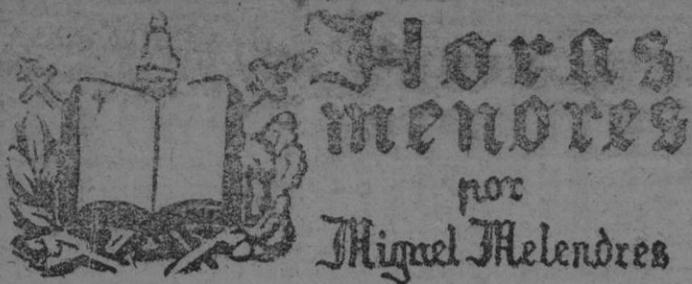 Horas
menores
por
Miguel Melendres